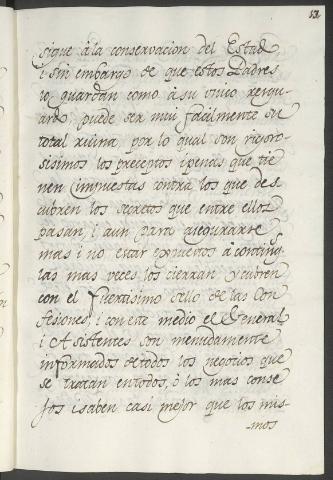 52
sigue à la conservacion del Estad
i sin embargo de que estos Padres
lo guardan como à su unico resgu
ardo, puede ser mui facilmente su
total ruina, por lo qual son rigoro-
sisimos los preceptos i penas que tie
nen impuestas contra los que des
cubren los secretos que entre ellos
pasan, i aun para asegurarse
mas i no estar expuestos à conting.
las mas veces los cierran y cubren
con el fuertisimo sello de las Con
fesiones, i con este medio el General
i Asistentes son menudamente
informados de todos los negocios que
se tratan en todos, ò los mas conse
jos i saben casi mejor que los mis-
-mos